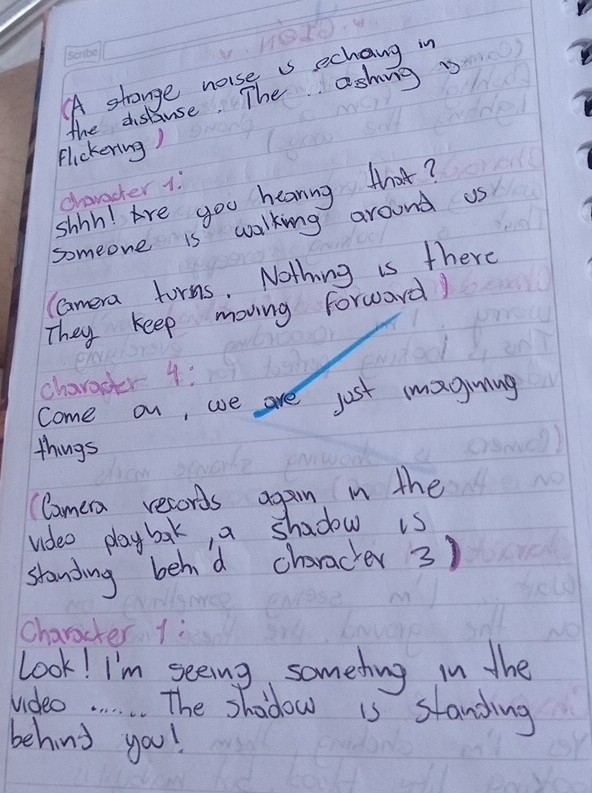 Scribe
(A strange noise is echoing in
the distanse. The .. ashing is
Flickering)
character 1:
Shhh! Are you hearing that?
Someone is walking around us
(Camera turns. Nothing is there
They keep moving forward)
character 4:
Come on, we are just imagining
things
(Camera records again in the
video playbak, a shadow is
standing behi'd character 3)
Character 1:
Look! I'm seeing someting in the
video ....... The shadow is standing
behind you!